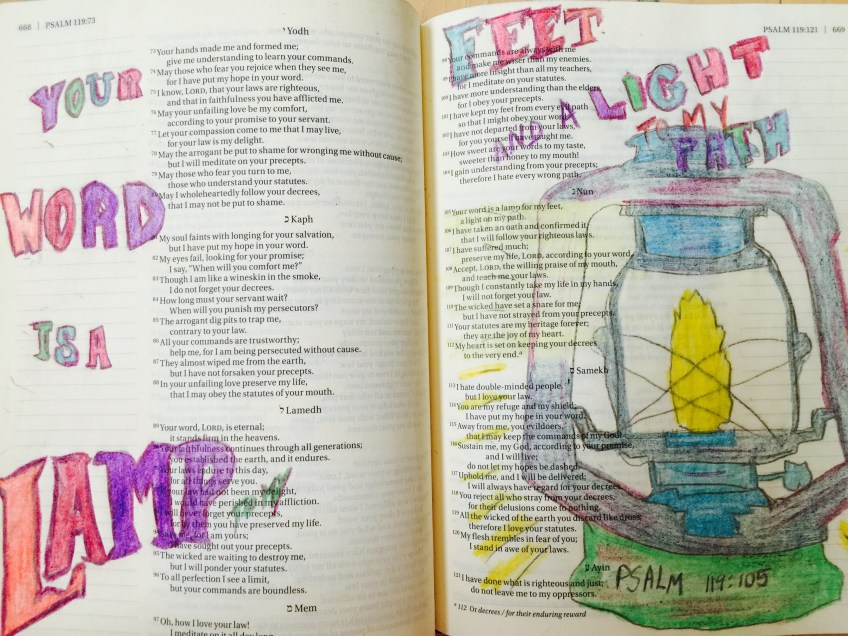 668 | PSALM 119:73
י Yodh
73 Your hands made me and formed me;
give me understanding to learn your commands.
74 May those who fear you rejoice when they see me,
for I have put my hope in your word.
75 I know, LORD, that your laws are righteous,
and that in faithfulness you have afflicted me.
76 May your unfailing love be my comfort,
according to your promise to your servant.
77 Let your compassion come to me that I may live,
for your law is my delight.
78 May the arrogant be put to shame for wronging me without cause;
but I will meditate on your precepts.
79 May those who fear you turn to me,
those who understand your statutes.
80 May I wholeheartedly follow your decrees,
that I may not be put to shame.
כ Kaph
81 My soul faints with longing for your salvation,
but I have put my hope in your word.
82 My eyes fail, looking for your promise;
I say, “When will you comfort me?”
83 Though I am like a wineskin in the smoke,
I do not forget your decrees.
84 How long must your servant wait?
When will you punish my persecutors?
85 The arrogant dig pits to trap me,
contrary to your law.
86 All your commands are trustworthy;
help me, for I am being persecuted without cause.
87 They almost wiped me from the earth,
but I have not forsaken your precepts.
88 In your unfailing love preserve my life,
that I may obey the statutes of your mouth.
ל Lamedh
89 Your word, LORD, is eternal;
it stands firm in the heavens.
90 Your faithfulness continues through all generations;
you established the earth, and it endures.
Your laws endure to this day,
for all things serve you.
If your law had not been my delight,
I would have perished in my affliction.
I will never forget your precepts,
for by them you have preserved my life.
Save me, for I am yours;
I have sought out your precepts.
95 The wicked are waiting to destroy me,
but I will ponder your statutes.
96 To all perfection I see a limit,
but your commands are boundless.
מ Mem
97 Oh, how I love your law!
I meditate on it all day long.
YOUR
WORD
IS A
LAMP
PSALM 119:121 | 669
FEET
AND A LIGHT
TO MY
PATH
98 Your commands are always with me
and make me wiser than my enemies.
99 I have more insight than all my teachers,
for I meditate on your statutes.
100 I have more understanding than the elders,
for I obey your precepts.
101 I have kept my feet from every evil path
so that I might obey your word.
102 I have not departed from your laws,
for you yourself have taught me.
103 How sweet are your words to my taste,
sweeter than honey to my mouth!
104 I gain understanding from your precepts;
therefore I hate every wrong path.
נ Nun
105 Your word is a lamp for my feet,
a light on my path.
106 I have taken an oath and confirmed it,
that I will follow your righteous laws.
107 I have suffered much;
preserve my life, LORD, according to your word.
108 Accept, LORD, the willing praise of my mouth,
and teach me your laws.
109 Though I constantly take my life in my hands,
I will not forget your law.
110 The wicked have set a snare for me,
but I have not strayed from your precepts.
111 Your statutes are my heritage forever;
they are the joy of my heart.
112 My heart is set on keeping your decrees
to the very end.a
ס Samekh
113 I hate double-minded people,
but I love your law.
114 You are my refuge and my shield;
I have put my hope in your word.
115 Away from me, you evildoers,
that I may keep the commands of my God!
116 Sustain me, my God, according to your promise,
and I will live;
do not let my hopes be dashed.
117 Uphold me, and I will be delivered;
I will always have regard for your decrees.
118 You reject all who stray from your decrees,
for their delusions come to nothing.
119 All the wicked of the earth you discard like dross;
therefore I love your statutes.
120 My flesh trembles in fear of you;
I stand in awe of your laws.
ע Ayin
121 I have done what is righteous and just;
do not leave me to my oppressors.
PSALM 119:105
a 112 Or decrees / for their enduring reward